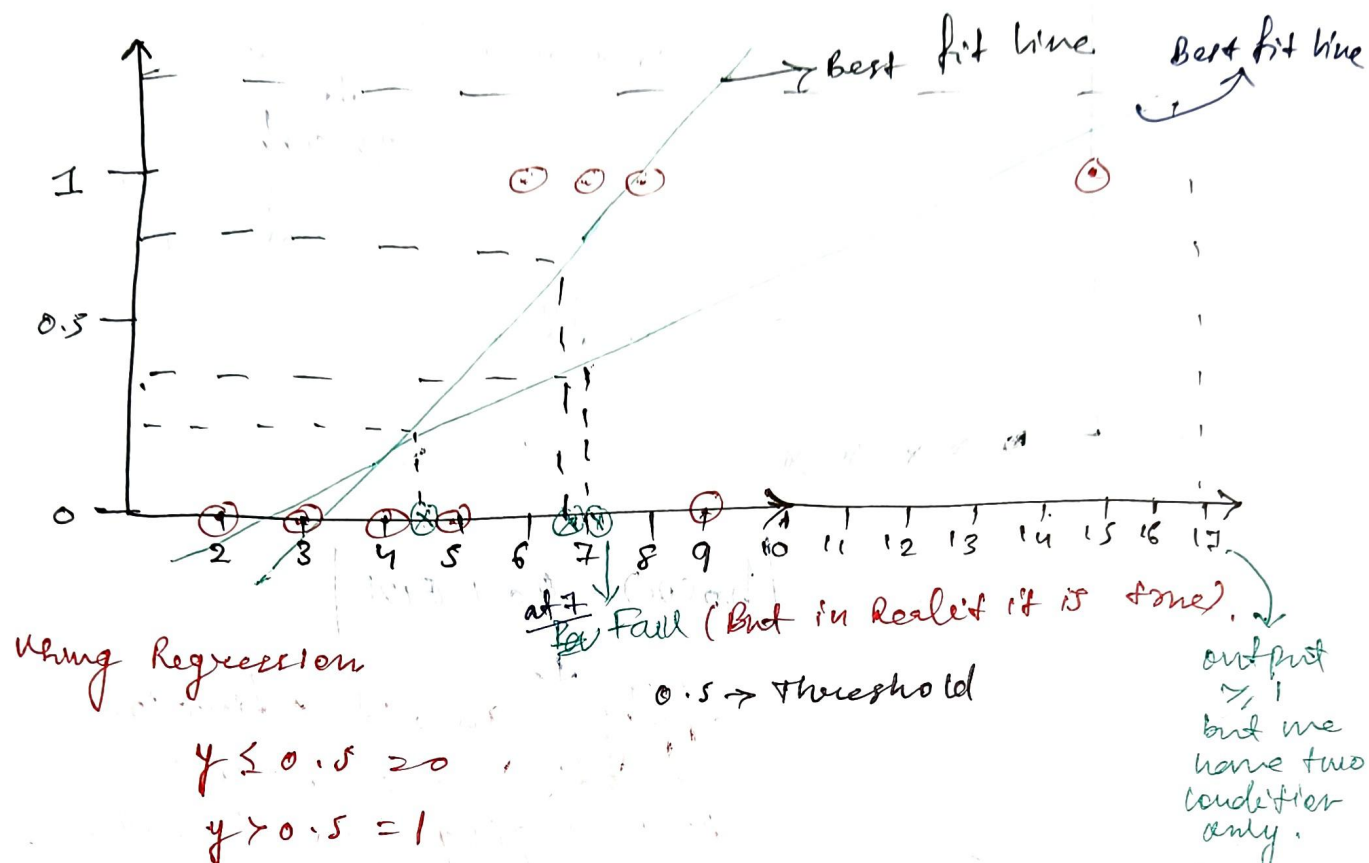 Best fit line
Best fit line
1
0.5
0
2 3 4 5 6 7 8 9 10 11 12 13 14 15 16 17
at 7
Fail (But in Realit it is true).
Using Regression
0.5 → Threshold
output
≥ 1
but we
have two
condition
only.
y ≤ 0.5 = 0
y > 0.5 = 1